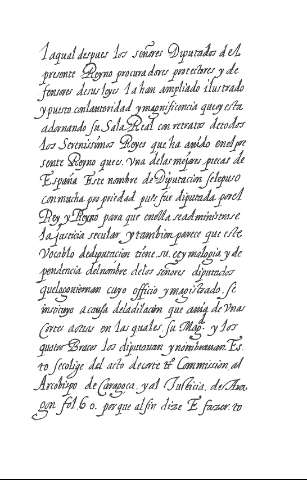 laqual despues los señores Diputados del
presente Reyno procuradores protectores y de
fensores desus leyes la han ampliado ilustrado
y puesto con lautoridad y magnificencia que oy esta
adornando su Sala Real con retratos de todos
los Serenissimos Reyes que ha auido en el pre
sente Reyno que es. Vna delas mejores pieças de
España Este nombre de Diputacion se le puso
con mucha propriedad pues fue diputada por el
Rey y Reyno para que en ella se administrase
la justicia secular y tambien parece que este
Vocablo de diputacion tiene su. etymologia y de
pendencia del nombre delos señores diputados
que la gouiernan cuyo officio y magistrado. se
instituyo a causa dela dilacion que auia de Vnas
Cortes a otras en las quales. su Magd. y los
quatro Braços los diputauan y nombrauan. Es
to se colige del acto de corte tt. Commission al
Arcobispo de Caragoça. y al Justicia. de Ara
gon fol. 60. porque al fin dize E fazer. to